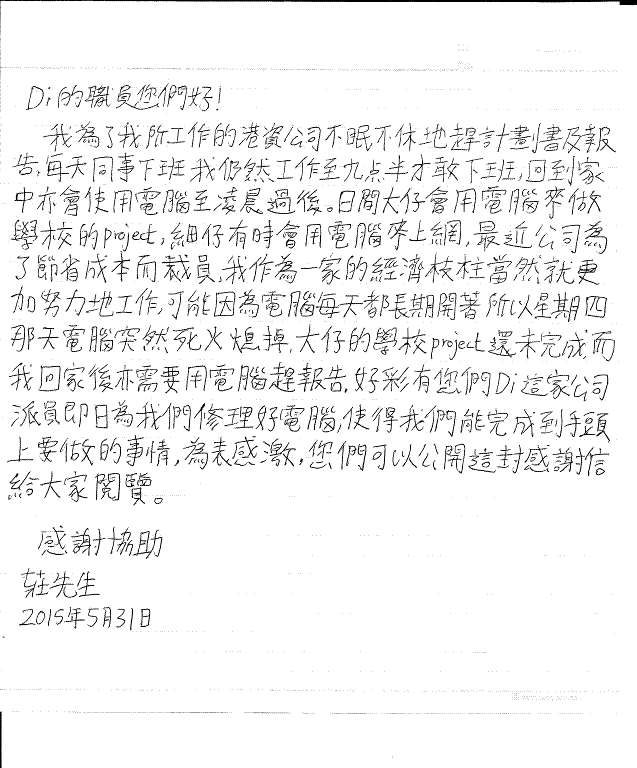 Di的職員您們好!
我為了我所工作的港資公司不眠不休地趕計劃書及報
告,每天同事下班我仍然工作至九点半才敢下班,回到家
中亦會使用電腦至凌晨過後。日間大仔會用電腦來做
學校的project,細仔有時會用電腦來上網,最近公司為
了節省成本而裁員,我作為一家的經濟枝柱當然就更
加努力地工作,可能因為電腦每天都長期開著所以星期四
那天電腦突然死火熄掉,大仔的學校project還未完成,而
我回家後亦需要用電腦趕報告,好彩有您們Di這家公司
派員即日為我們修理好電腦,使得我們能完成到手頭
上要做的事情,為表感激,您們可以公開這封感謝信
給大家閱覽。
感謝協助
莊先生
2015年5月31日